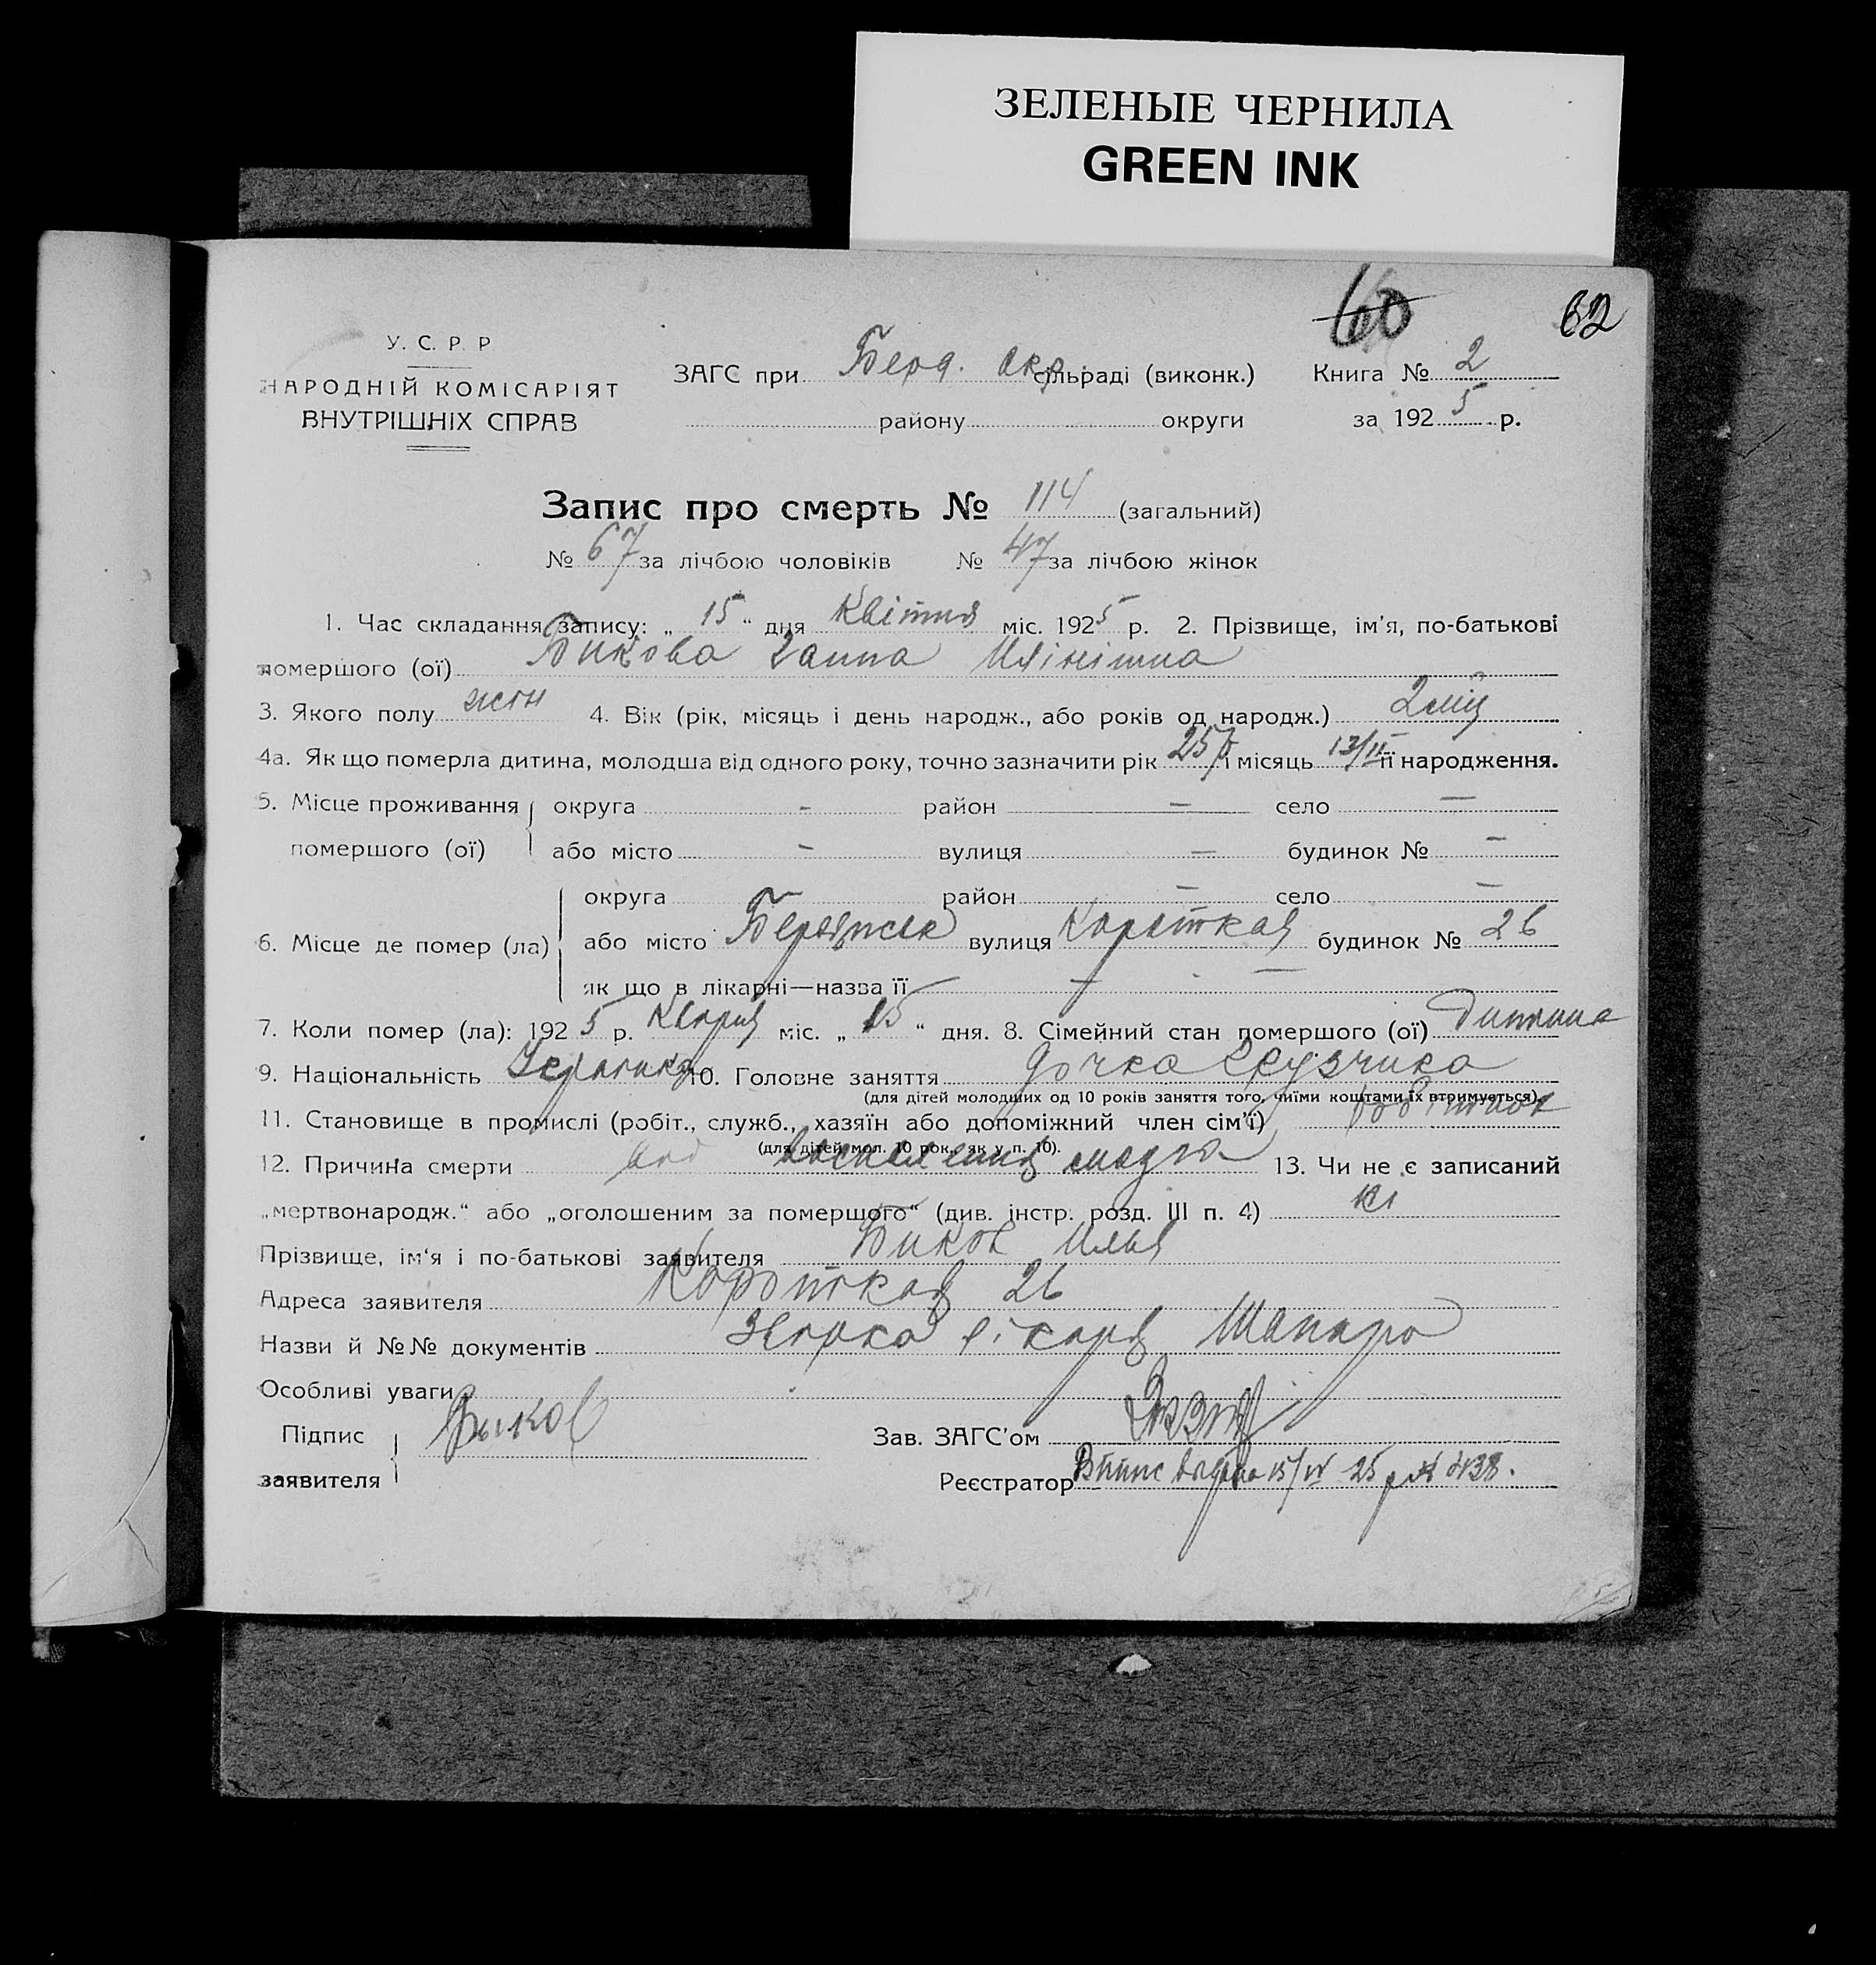 ЗЕЛЕНЫЕ ЧЕРНИЛА
GREEN INK
60 62
У. С. Р. Р
НАРОДНІЙ КОМІСАРІЯТ
ВНУТРІШНІХ СПРАВ
ЗАГС при Берд. окр. сільраді (виконк.) Книга № 2
району округи за 1925 р.
Запис про смерть № 114 (загальний)
№ 67 за лічбою чоловіків № 47 за лічбою жінок
1. Час складання запису: „ 15 “ дня Квітня міс. 1925 р. 2. Прізвище, ім'я, по-батькові
помершого (ої) Бикова Ганна
3. Якого полу жен 4. Вік (рік, місяць і день народж., або років од народж.) 2 міс
4а. Як що померла дитина, молодша від одного року, точно зазначити рік 25 і місяць 13/II її народження.
5. Місце проживання округа - район - село -
помершого (ої) або місто - вулиця - будинок № -
6. Місце де помер (ла) округа район - село -
або місто Бердянськ вулиця Короткая будинок № 26
як що в лікарні—назва її -
7. Коли помер (ла): 1925 р. Квітня міс. „ 15 “ дня. 8. Сімейний стан помершого (ої) Дитина
9. Національність 10. Головне заняття дочка грузчика
(для дітей молодших од 10 років заняття того, чиїми коштами їх втримується).
11. Становище в промислі (робіт., служб., хазяїн або допоміжний член сім'ї) робітник
(для дітей мол. 10 рок., як у п. 10).
12. Причина смерти воспаления 13. Чи не є записаний
„мертвонародж.“ або „оголошеним за помершого“ (див. інстр. розд. III п. 4) ні
Прізвище, ім'я і по-батькові заявителя Биков Илья
Адреса заявителя Короткая 26
Назви й №№ документів лікаря Шапиро
Особливі уваги
Підпис заявителя Быков
Зав. ЗАГС'ом
Реєстратор Випис видана 15/IV 25 р № 438.